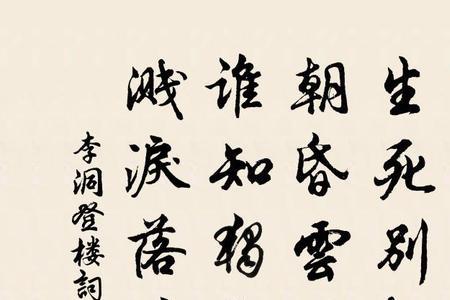 生死别
朝昏雲
誰知獨
濺淚落
李洞登楼詞